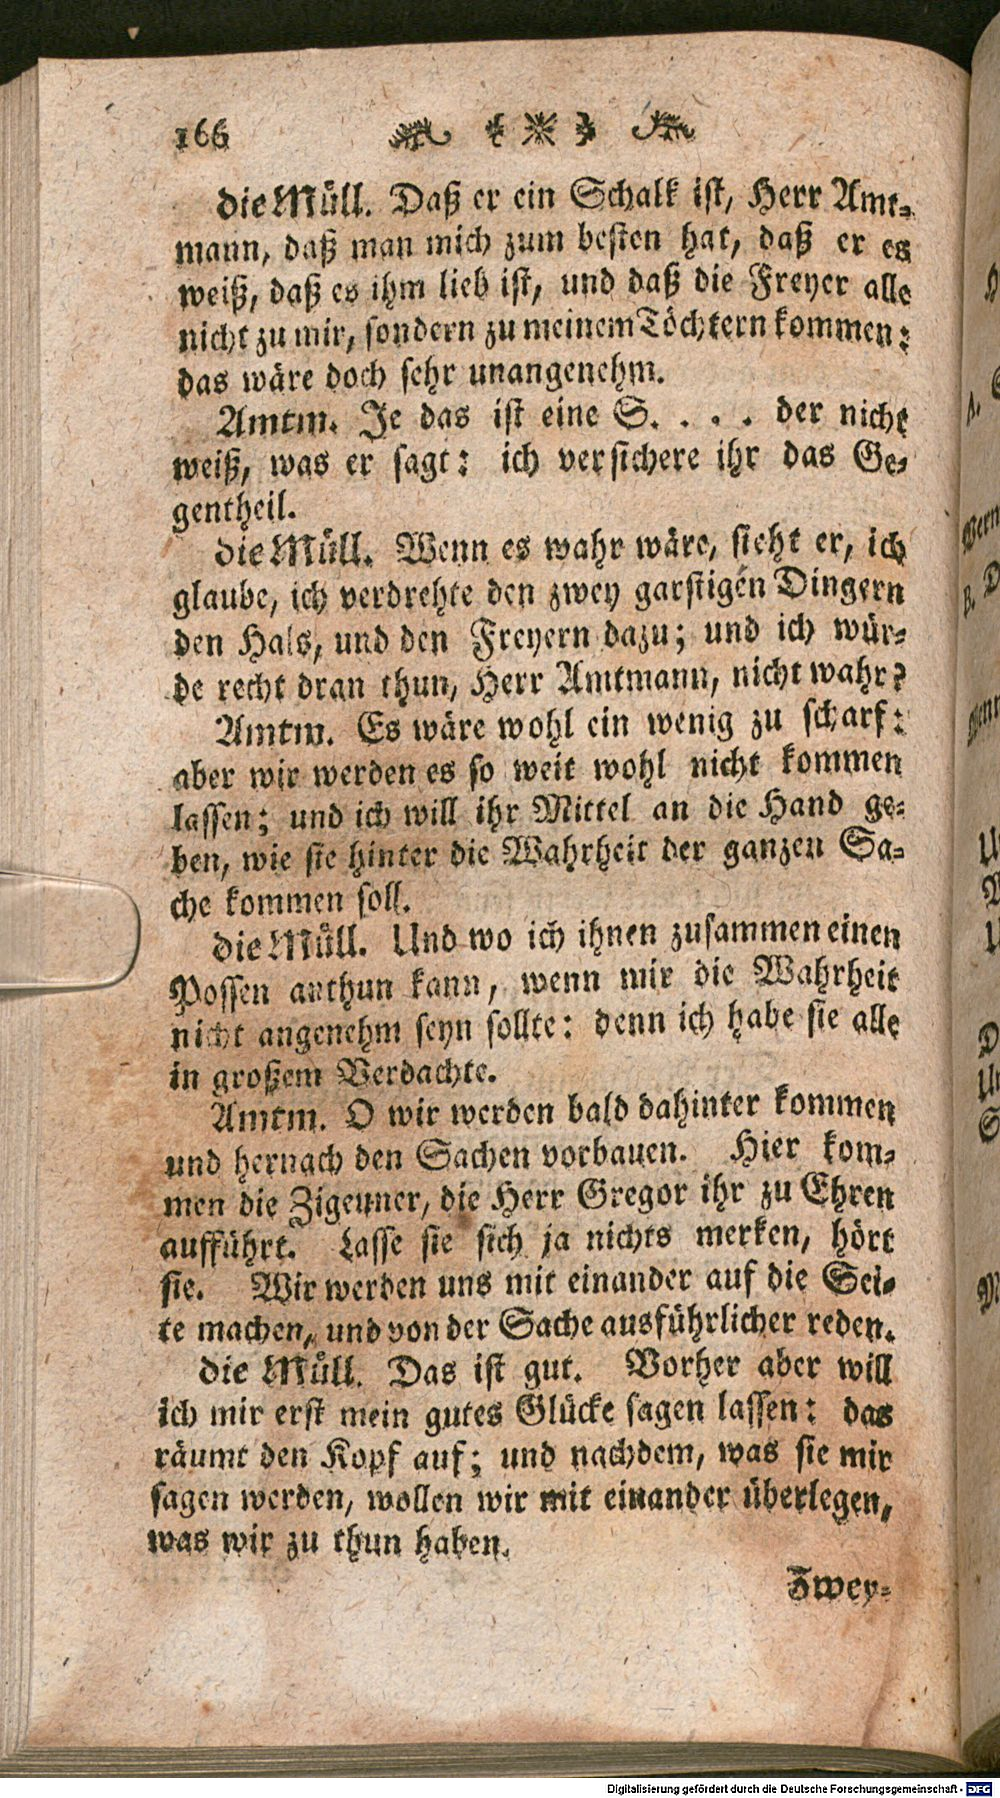 166
die Müll. Daß er ein Schalk ist, Herr Amt-
mann, daß man mich zum besten hat, daß er es
weiß, daß es ihm lieb ist, und daß die Freyer alle
nicht zu mir, sondern zu meinem Töchtern kommen:
das wäre doch sehr unangenehm.
Amtm. Je das ist eine S. . . . der nicht
weiß, was er sagt: ich versichere ihr das Ge-
gentheil.
die Müll. Wenn es wahr wäre, sieht er, ich
glaube, ich verdrehte den zwey garstigen Dingern
den Hals, und den Freyern dazu; und ich wür-
de recht dran thun, Herr Amtmann, nicht wahr?
Amtm. Es wäre wohl ein wenig zu scharf:
aber wir werden es so weit wohl nicht kommen
lassen; und ich will ihr Mittel an die Hand ge-
ben, wie sie hinter die Wahrheit der ganzen Sa-
che kommen soll.
die Müll. Und wo ich ihnen zusammen einen
Possen anthun kann, wenn mir die Wahrheit
nicht angenehm seyn sollte: denn ich habe sie alle
in großem Verdachte.
Amtm. O wir werden bald dahinter kommen
und hernach den Sachen vorbauen. Hier kom-
men die Zigeuner, die Herr Gregor ihr zu Ehren
aufführt. Lasse sie sich ja nichts merken, hört
sie. Wir werden uns mit einander auf die Sei-
te machen, und von der Sache ausführlicher reden.
die Müll. Das ist gut. Vorher aber will
ich mir erst mein gutes Glücke sagen lassen: das
räumt den Kopf auf; und nachdem, was sie mir
sagen werden, wollen wir mit einander überlegen,
was wir zu thun haben.
Zwey-
Digitalisierung gefördert durch die Deutsche Forschungsgemeinschaft - DFG